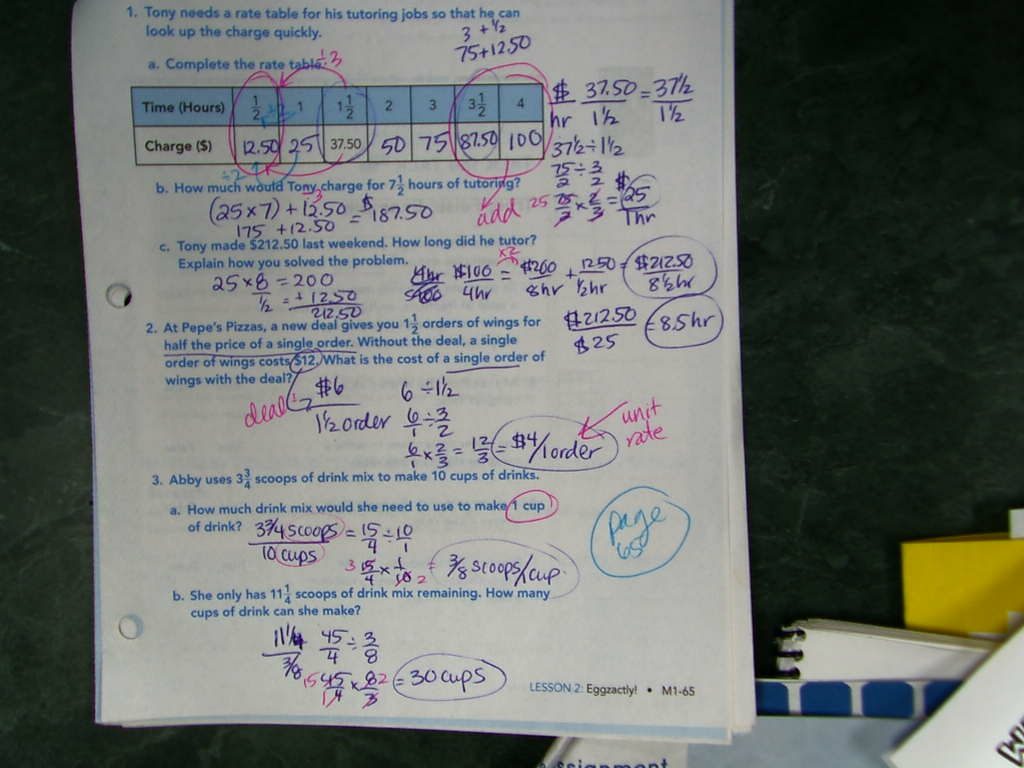 1. Tony needs a rate table for his tutoring jobs so that he can
look up the charge quickly.
3 + 1/2
75+12.50
a. Complete the rate table.
÷3
Time (Hours) 1/2 1 1 1/2 2 3 3 1/2 4
Charge ($) 12.50 25 37.50 50 75 87.50 100
÷2
$/hr 37.50/1 1/2 = 37 1/2/1 1/2
37 1/2 ÷ 1 1/2
75/2 ÷ 3/2
25 75/2 × 2/3 = $25/1hr
b. How much would Tony charge for 7 1/2 hours of tutoring?
÷3
(25 x 7) + 12.50 = $187.50
175 + 12.50
add
c. Tony made $212.50 last weekend. How long did he tutor?
Explain how you solved the problem.
25 x 8 = 200
1/2 = + 12.50
212.50
4hr/$100 $100/4hr = $200/8hr + 12.50/1/2hr = $212.50/8 1/2 hr
x2
$212.50/$25 = 8.5hr
2. At Pepe's Pizzas, a new deal gives you 1 1/2 orders of wings for
half the price of a single order. Without the deal, a single
order of wings costs $12. What is the cost of a single order of
wings with the deal?
deal: $6/1 1/2 order
6 ÷ 1 1/2
6/1 ÷ 3/2
6/1 × 2/3 = 12/3 = $4/1order
unit
rate
3. Abby uses 3 3/4 scoops of drink mix to make 10 cups of drinks.
a. How much drink mix would she need to use to make 1 cup
of drink?
3 3/4 scoops/10 cups = 15/4 ÷ 10/1
3 15/4 × 1/10 2 = 3/8 scoops/cup.
page
650
b. She only has 11 1/4 scoops of drink mix remaining. How many
cups of drink can she make?
11 1/4/3/8 45/4 ÷ 3/8
15 45/4 1 × 8 2/3 = 30 cups
LESSON 2: Eggzactly! • M1-65
ssignment